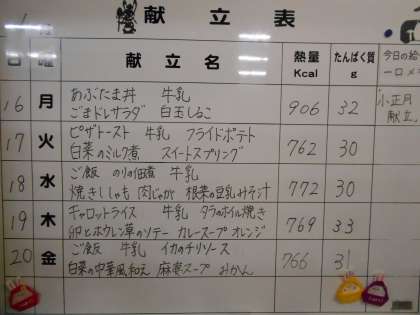 献立表
日 曜 献立名 熱量 Kcal たんぱく質 g 今日の給
一口メモ
16 月 あぶたま丼 牛乳
ごまドレサラダ 白玉しるこ 906 32 小正月
献立
17 火 ピザトースト 牛乳 フライドポテト
白菜のミルク煮 スイートスプリング 762 30
18 水 ご飯 のりの佃煮 牛乳
焼きししゃも 肉じゃが 根菜の豆乳みそ汁 772 30
19 木 キャロットライス 牛乳 タラのホイル焼き
卵とホウレン草のソテー カレースープ オレンジ 769 33
20 金 ご飯 牛乳 イカのチリソース
白菜の中華風和え 麻婆スープ みかん 766 31